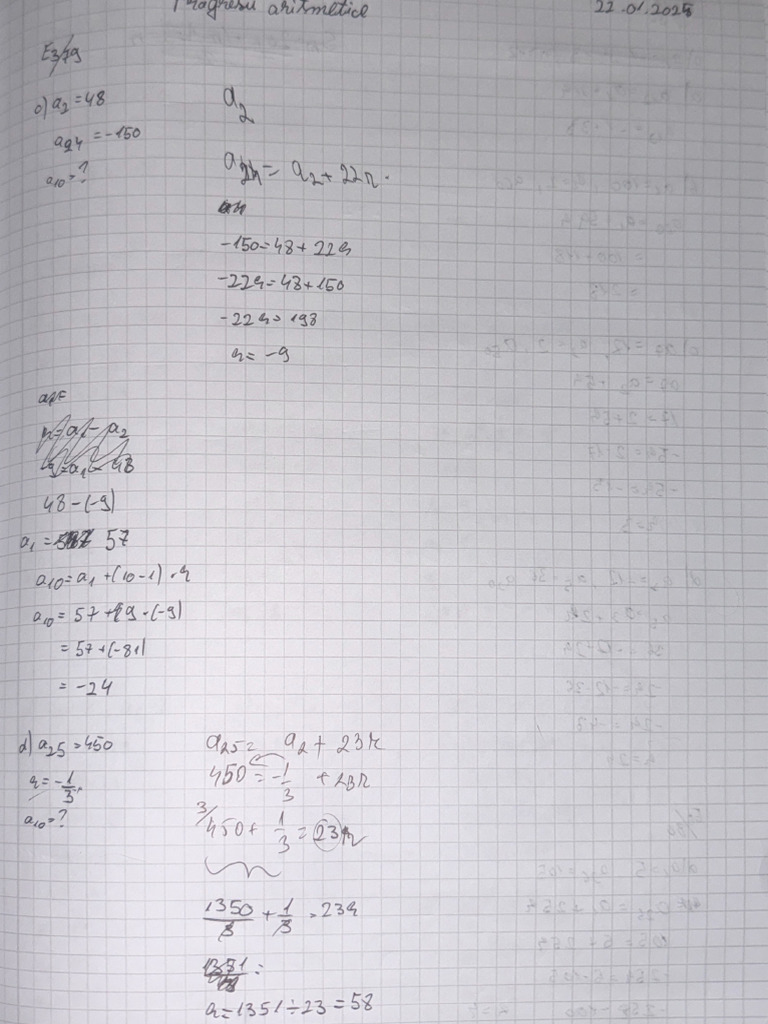 Progresii aritmetice 22.01.2025
E3/79
c) a₂ = 48
a₂₄ = -150
a₁₀ = ?
a₂
a₂₄ = a₂ + 22r.
-150 = 48 + 22r
-22r = 48 + 150
-22r = 198
r = -9
48 - (-9)
a₁ = 57
a₁₀ = a₁ + (10-1) · r
a₁₀ = 57 + 9 · (-9)
= 57 + (-81)
= -24
d) a₂₅ = 450
r = -1/3
a₁₀ = ?
a₂₅ = a₂ + 23r
450 = -1/3 + 23r
3/ 450 + 1/3 = 23r
1350/3 + 1/3 = 23r
r = 1351 ÷ 23 = 58